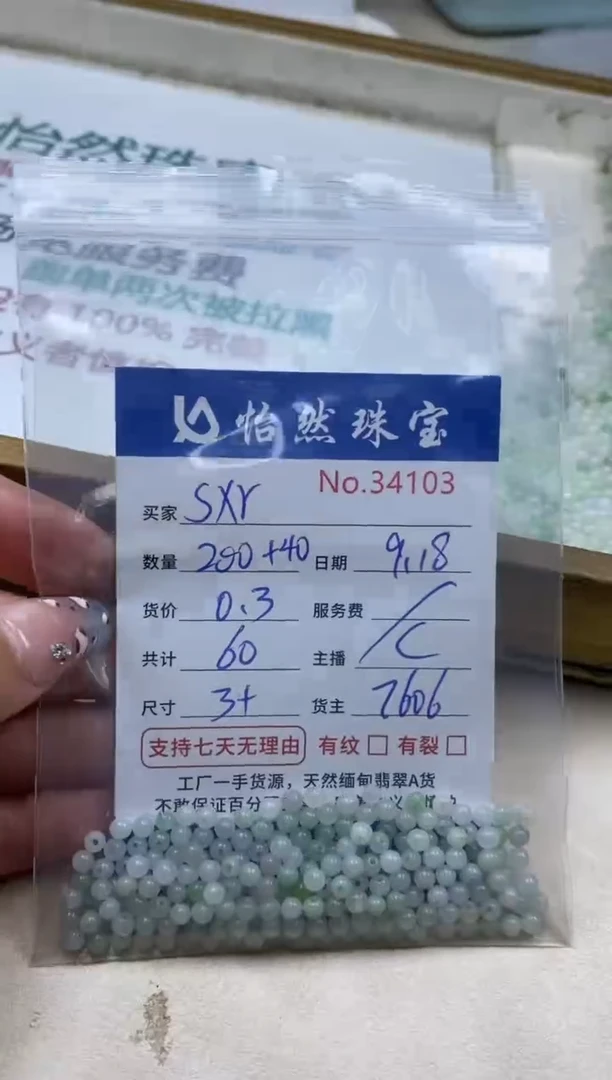 怡然珠宝
免服务费
跑单两次被拉黑
100% 完美
义者慎
怡然珠宝
No.34103
买家 SXY
数量 200+40 日期 9.18
货价 0.3 服务费 /
共计 60 主播 C
尺寸 3+ 货主 7606
支持七天无理由 有纹 □ 有裂 □
工厂一手货源，天然缅甸翡翠A货
不敢保证百分